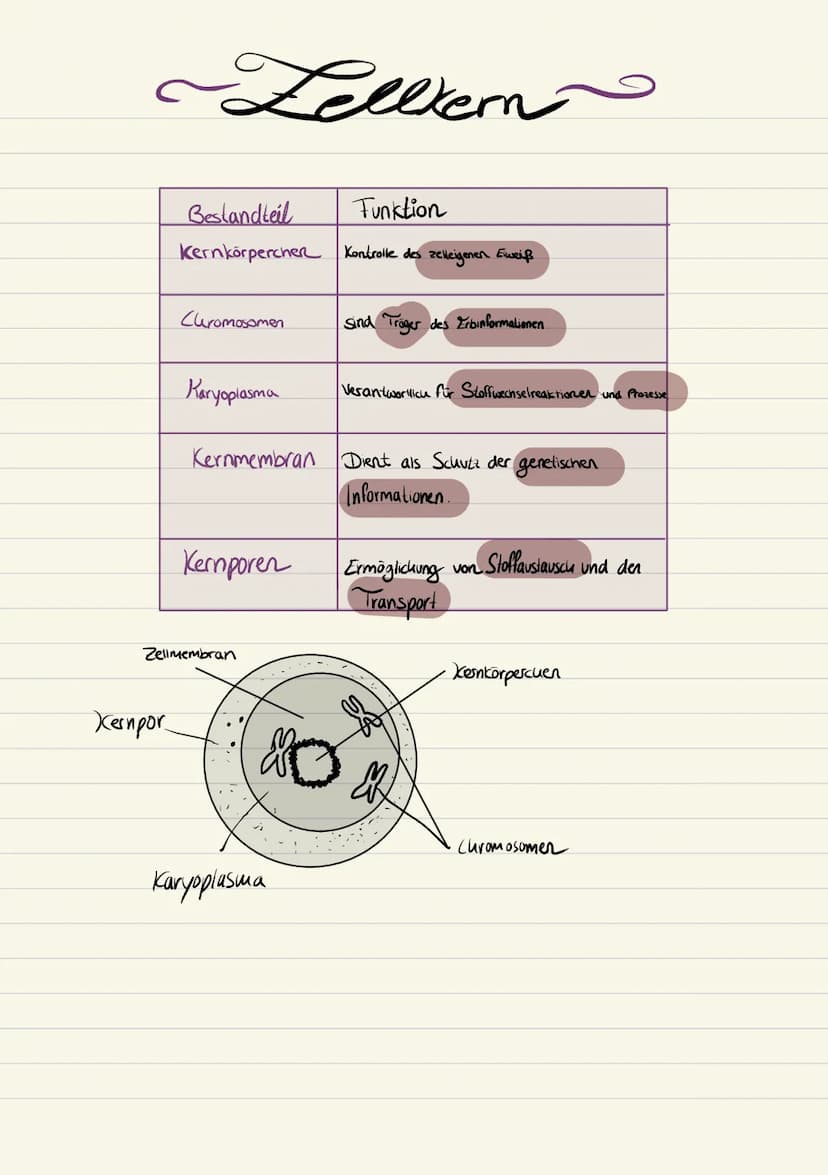 Zellkern
Bestandteil Funktion
Kernkörperchen Kontrolle des zelleigenen Eiweiß
Chromosomen sind Träger des Erbinformationen
Karyoplasma Verantwortlich für Stoffwechselreaktionen und Prozesse
Kernmembran Dient als Schutz der genetischen
Informationen.
Kernporen Ermöglichung von Stoffaustausch und den
Transport
Zellmembran
Kernkörperchen
Kernpor
Chromosomen
Karyoplasma